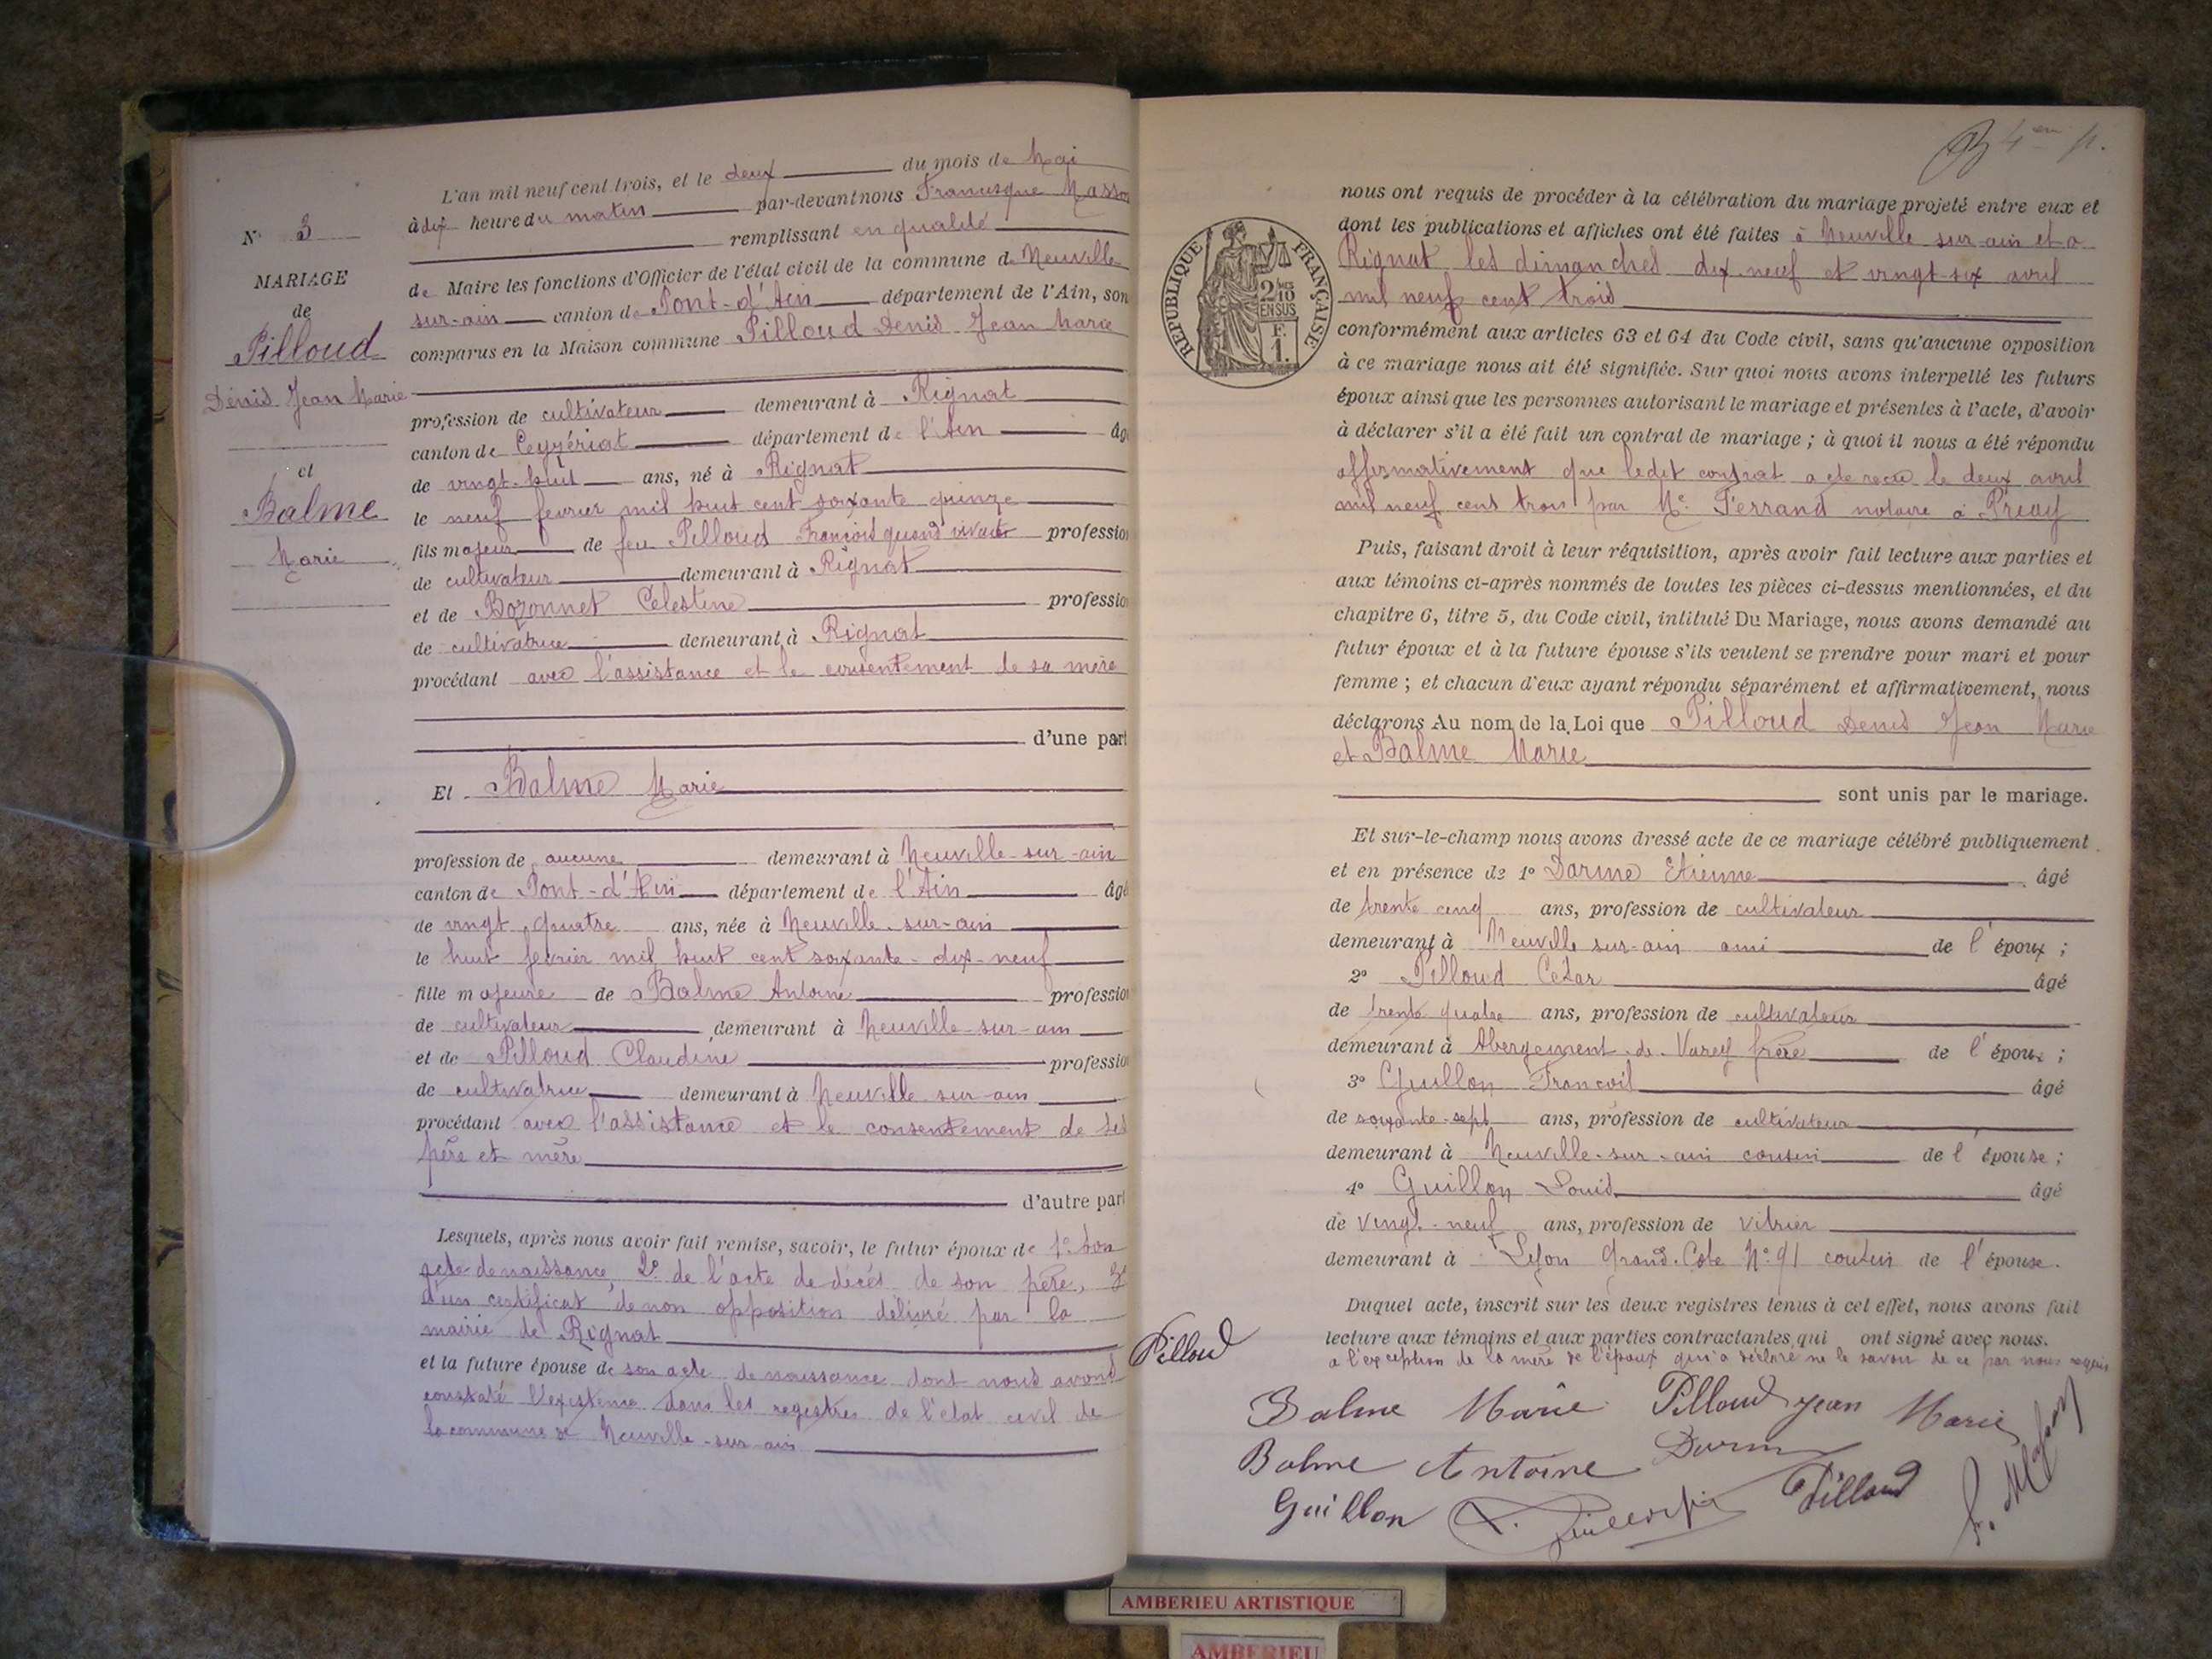 L'an mil neuf cent trois, et le deux du mois de Mai
à dix heure du matin par-devant nous Francisque Masson
remplissant en qualité
de Maire les fonctions d'Officier de l'état civil de la commune de Neuville
sur-ain canton de Pont-d'Ain département de l'Ain, son
comparus en la Maison commune Pilloud Denis Jean Marie
profession de cultivateur demeurant à Rignat
canton de Ceyzériat département de l'Ain âgé
de vingt-huit ans, né à Rignat
le neuf fevrier mil huit cent soixante quinze
fils majeur de feu Pilloud François quand vivait profession
de cultivateur demeurant à Rignat
et de Bozonnet Célestine profession
de cultivatrice demeurant à Rignat
procédant avec l'assistance et le consentement de sa mère
d'une part
Et Balme Marie
profession de aucune demeurant à Neuville-sur-ain
canton de Pont-d'Ain département de l'Ain âgé
de vingt quatre ans, née à Neuville-sur-ain
le huit fevrier mil huit cent soixante-dix-neuf
fille majeure de Balme Antoine profession
de cultivateur demeurant à Neuville-sur-ain
et de Pilloud Claudine profession
de cultivatrice demeurant à Neuville sur-ain
procédant avec l'assistance et le consentement de ses
père et mère
d'autre part
Lesquels, après nous avoir fait remise, savoir, le futur époux de 1° son
acte de naissance, 2° de l'acte de décès de son père, 3°
d'un certificat de non opposition délivré par la
mairie de Rignat
et la future épouse de son acte de naissance dont nous avons
constaté l'existence dans les registres de l'état civil de
la commune de Neuville-sur-ain
N° 3
MARIAGE
de
Pilloud
Denis Jean Marie
et
Balme
Marie
4
REPUBLIQUE FRANÇAISE
2/10 EN SUS
F.
1.
nous ont requis de procéder à la célébration du mariage projeté entre eux et
dont les publications et affiches ont été faites à Neuville sur-ain et a
Rignat les dimanches dix-neuf et vingt-six avril
mil neuf cent trois
conformément aux articles 63 et 64 du Code civil, sans qu'aucune opposition
à ce mariage nous ait été signifiée. Sur quoi nous avons interpellé les futurs
époux ainsi que les personnes autorisant le mariage et présentes à l'acte, d'avoir
à déclarer s'il a été fait un contrat de mariage ; à quoi il nous a été répondu
affirmativement que ledit contrat a été recu le deux avril
mil neuf cent trois par Me Ferrand notaire à Priay
Puis, faisant droit à leur réquisition, après avoir fait lecture aux parties et
aux témoins ci-après nommés de toutes les pièces ci-dessus mentionnées, et du
chapitre 6, titre 5, du Code civil, intitulé Du Mariage, nous avons demandé au
futur époux et à la future épouse s'ils veulent se prendre pour mari et pour
femme ; et chacun d'eux ayant répondu séparément et affirmativement, nous
déclarons Au nom de la Loi que Pilloud Denis Jean Marie
et Balme Marie
sont unis par le mariage.
Et sur-le-champ nous avons dressé acte de ce mariage célébré publiquement
et en présence de 1° Darme Etienne âgé
de trente cinq ans, profession de cultivateur
demeurant à Neuville sur-ain ami de l'époux ;
2° Pilloud César âgé
de trente quatre ans, profession de cultivateur
demeurant à Abergement-de-Varey frère de l'époux ;
3° Guillon François âgé
de soixante-sept ans, profession de cultivateur
demeurant à Neuville-sur-ain cousin de l'épouse ;
4° Guillon Louis âgé
de vingt-neuf ans, profession de vitrier
demeurant à Lyon Grand-Cote N° 91 cousin de l'épouse.
Duquel acte, inscrit sur les deux registres tenus à cet effet, nous avons fait
lecture aux témoins et aux parties contractantes qui ont signé avec nous.
a l'exception de la mère de l'époux qui a déclaré ne le savoir de ce par nous requis
Pilloud
Balme Marie Pilloud Jean Marie
Balme Antoine Darme
Guillon Pilloud
F. Masson
AMBERIEU ARTISTIQUE
AMBERIEU